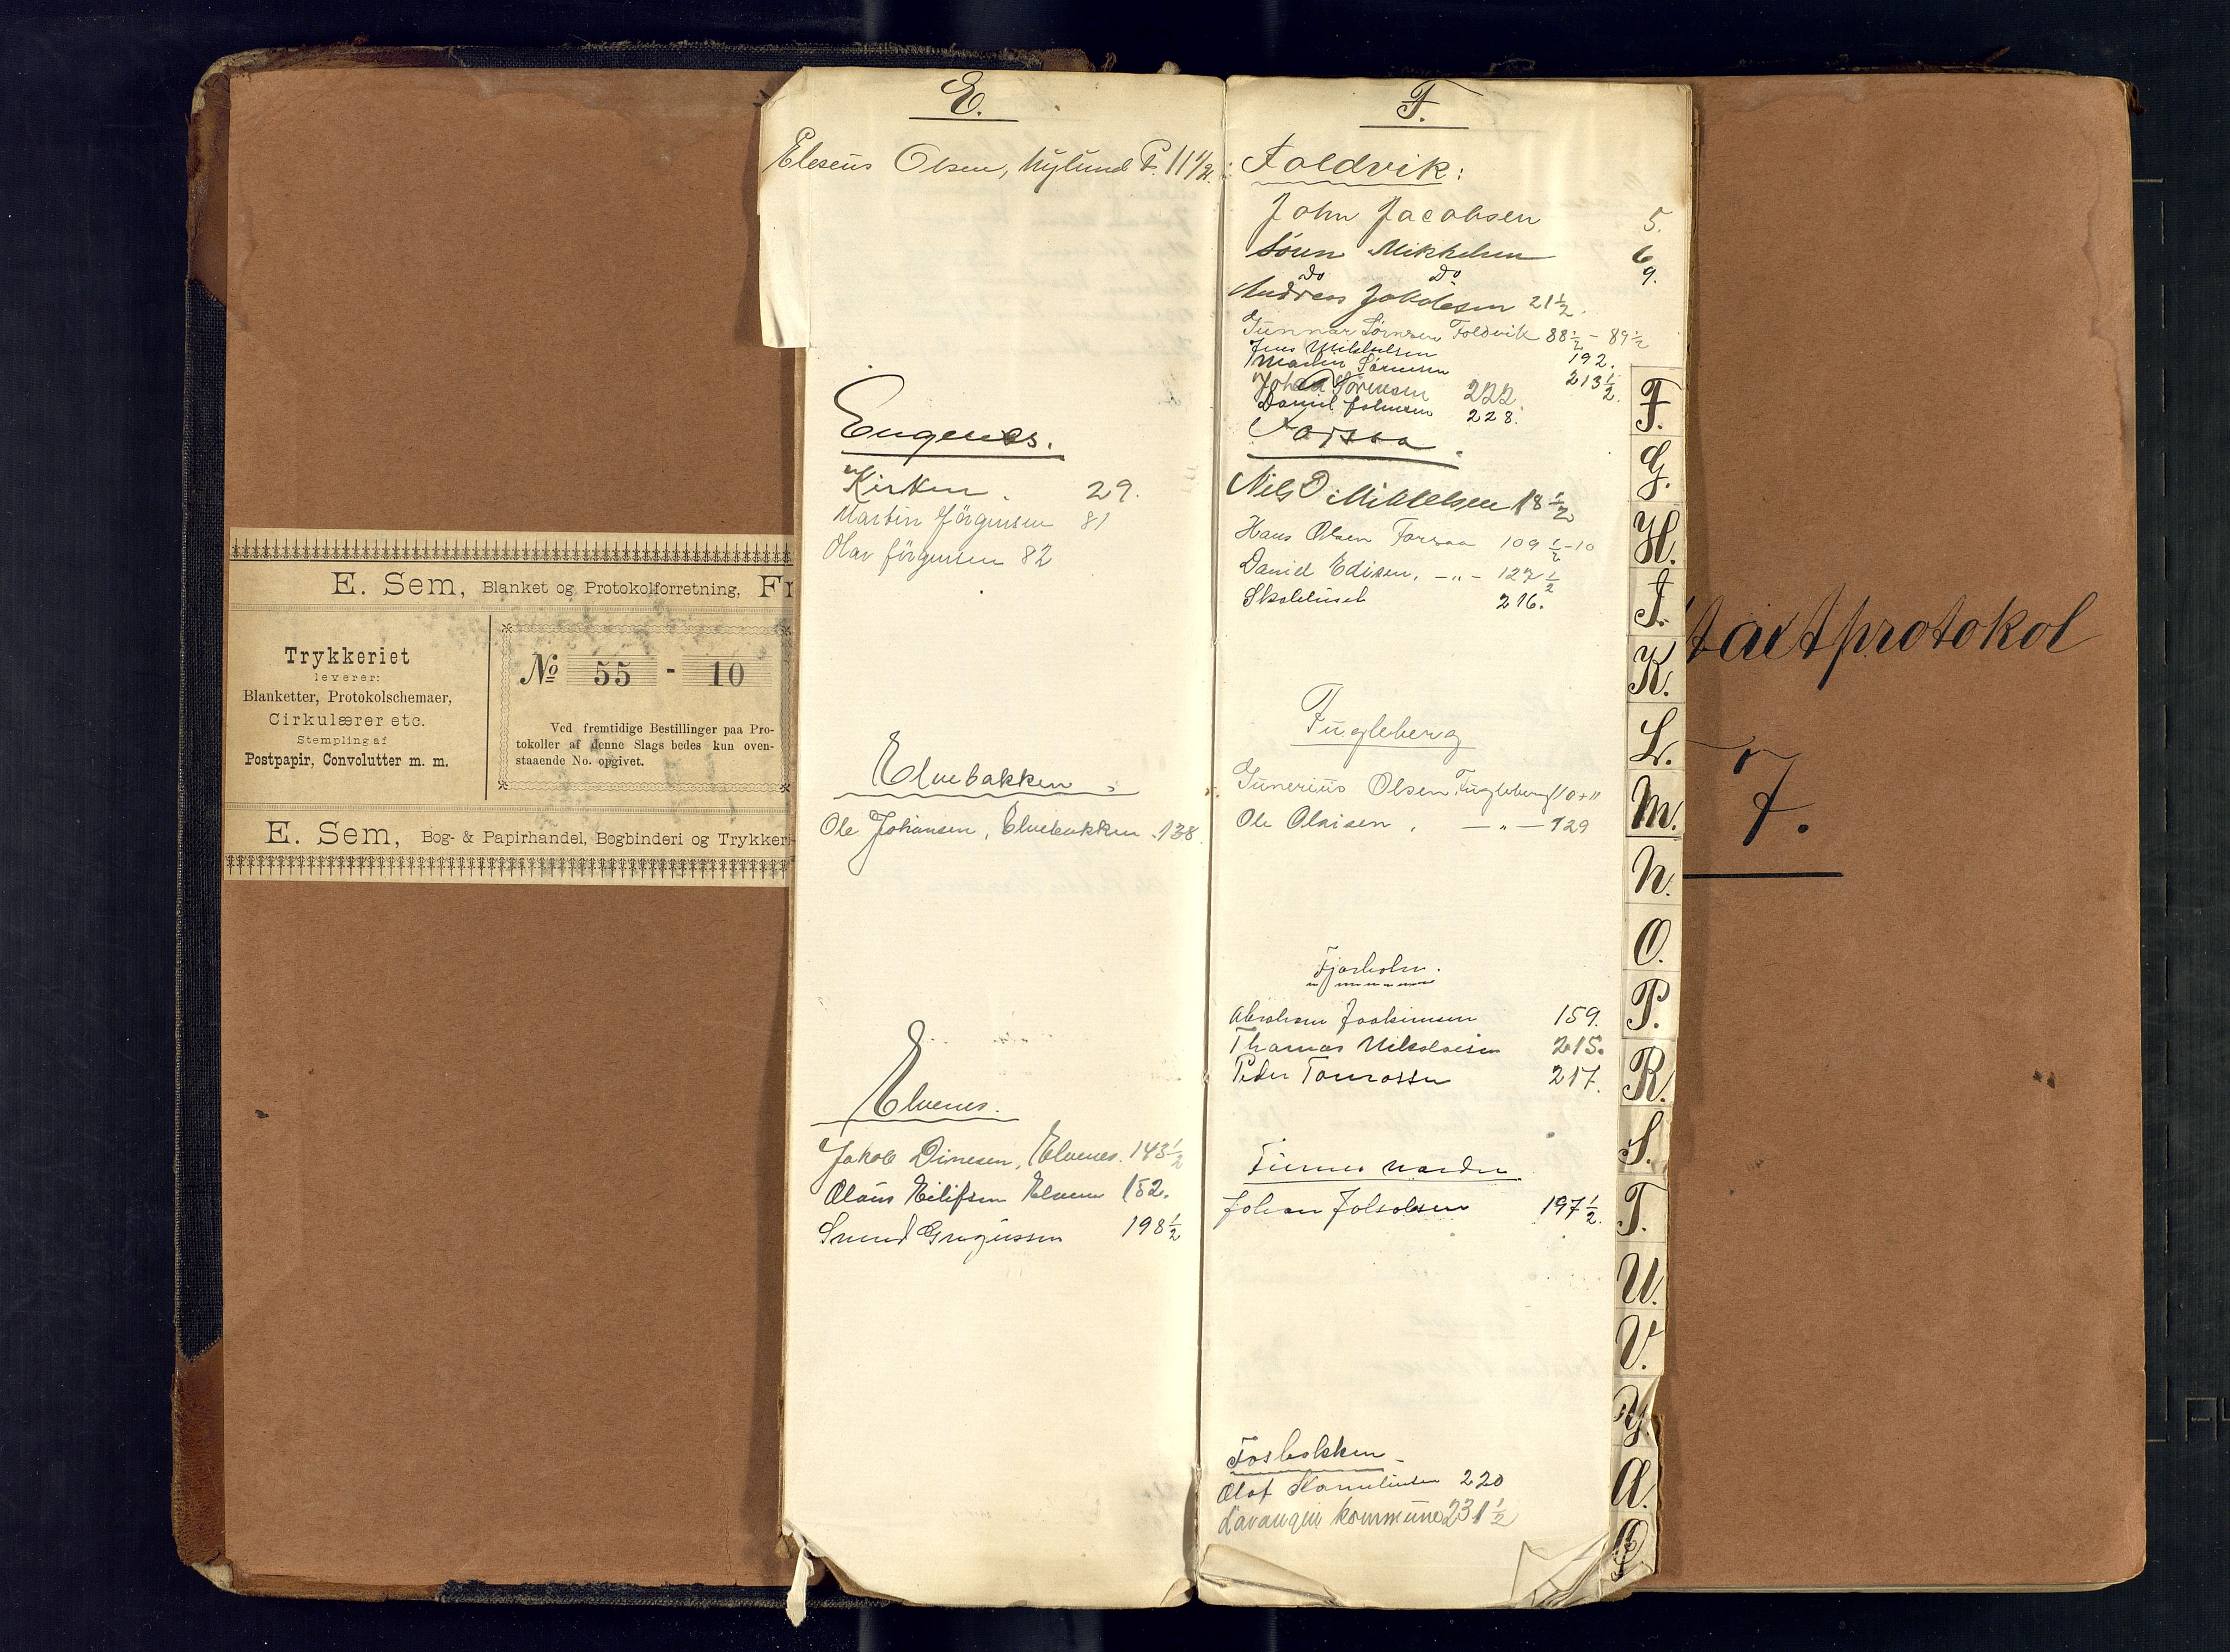 E. Sem, Blanket og Protokolforretning, Fr
Trykkeriet
leverer:
Blanketter, Protokolschemaer,
Cirkulærer etc.
Stempling af
Postpapir, Convolutter m. m.
No 55 - 10
Ved fremtidige Bestillinger paa Pro-
tokoller af denne Slags bedes kun oven-
staaende No. opgivet.
E. Sem, Bog- & Papirhandel, Bogbinderi og Trykkeri
E.
Eleseus Olsen, Nylund F. 11 1/2.
Engenes.
Kirken. 29.
Martin Jörgensen 81
Olav Jörgensen 82
Elvebakken.
Ole Johansen, Elvebakken. 138
Elvenes.
Jakob Dinesen, Elvenes. 143 1/2
Olaus Eilifsen Elvenes 152.
198 1/2
F.
Foldvik:
John Jacobsen 5.
Sören Mikkelsen 6
Do Do 9.
Andreas Jakobsen 21 1/2.
Gunnar Sörensen Foldvik 88 1/2 - 89 1/2
Jens Mikkelsen 192.
Martin Sörensen 213 1/2.
Johan Sörensen 222
Daniel Johnsen 228.
Forsaa.
Nils O Mikkelsen 18 1/2
Hans Olsen Forsaa 109 1/2 - 10
Daniel Edisen, - " - 127 1/2
Skolehuset 216.
Fugleberg
Gunerius Olsen, Fugleberg 110 + 11
Ole Olaisen, - " - 129
Fjorholm.
Abraham Joakimsen 159.
Thomas Nikolaisen 215.
Peder 217.
Johan Jakobsen 197 1/2.
Fosbakken
Olaf 220
Lavangen kommune 231 1/2
F.
G.
H.
I.
K.
L.
M.
N.
O.
P.
R.
S.
T.
U.
V.
Y.
Æ.
Ø
taxtprotokol
7.